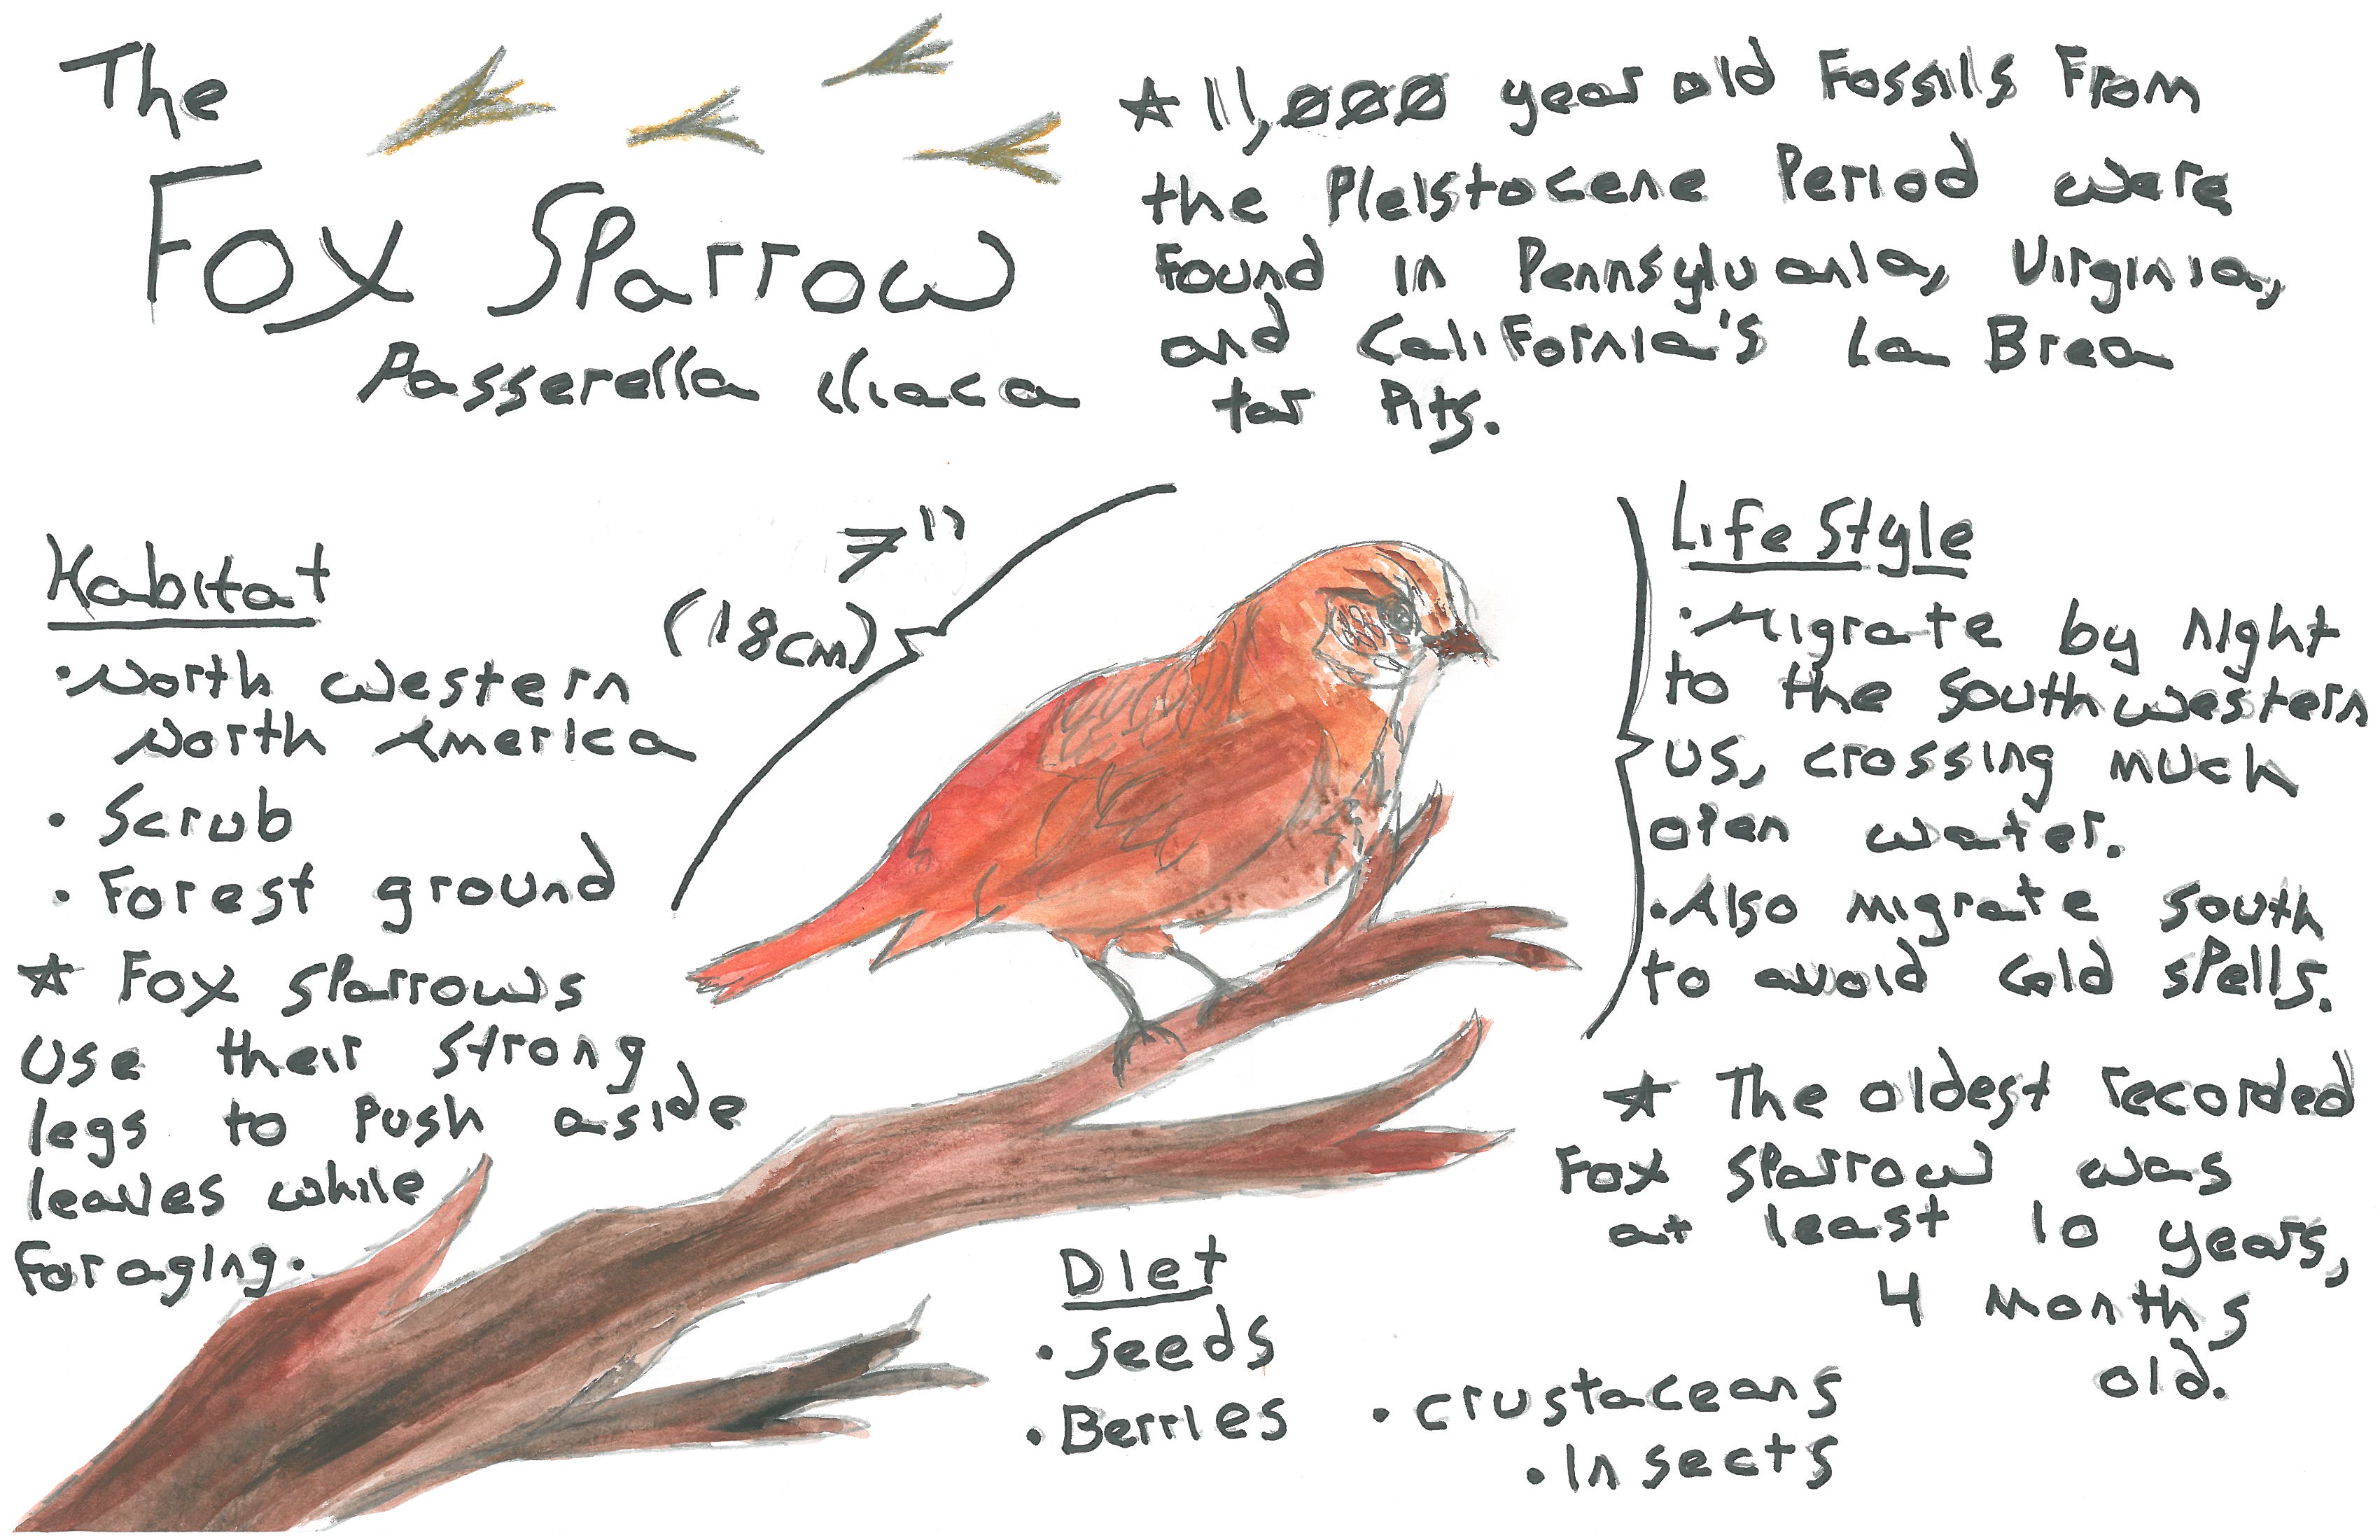 The
Fox Sparrow
Passerella iliaca
☆ 11,000 year old Fossils From
the Pleistocene Period were
Found in Pennsylvania, Virginia,
and California's La Brea
tar Pits.
7"
(18cm)
Habitat
• North Western
North America
• Scrub
• Forest ground
☆ Fox Sparrows
Use their strong
legs to push aside
leaves while
Foraging.
Life Style
• Migrate by night
to the Southwestern
US, crossing much
open water.
• Also migrate south
to avoid cold spells.
☆ The oldest recorded
Fox Sparrow was
at least 10 years,
4 months
old.
Diet
• Seeds
• Berries
• Crustaceans
• Insects